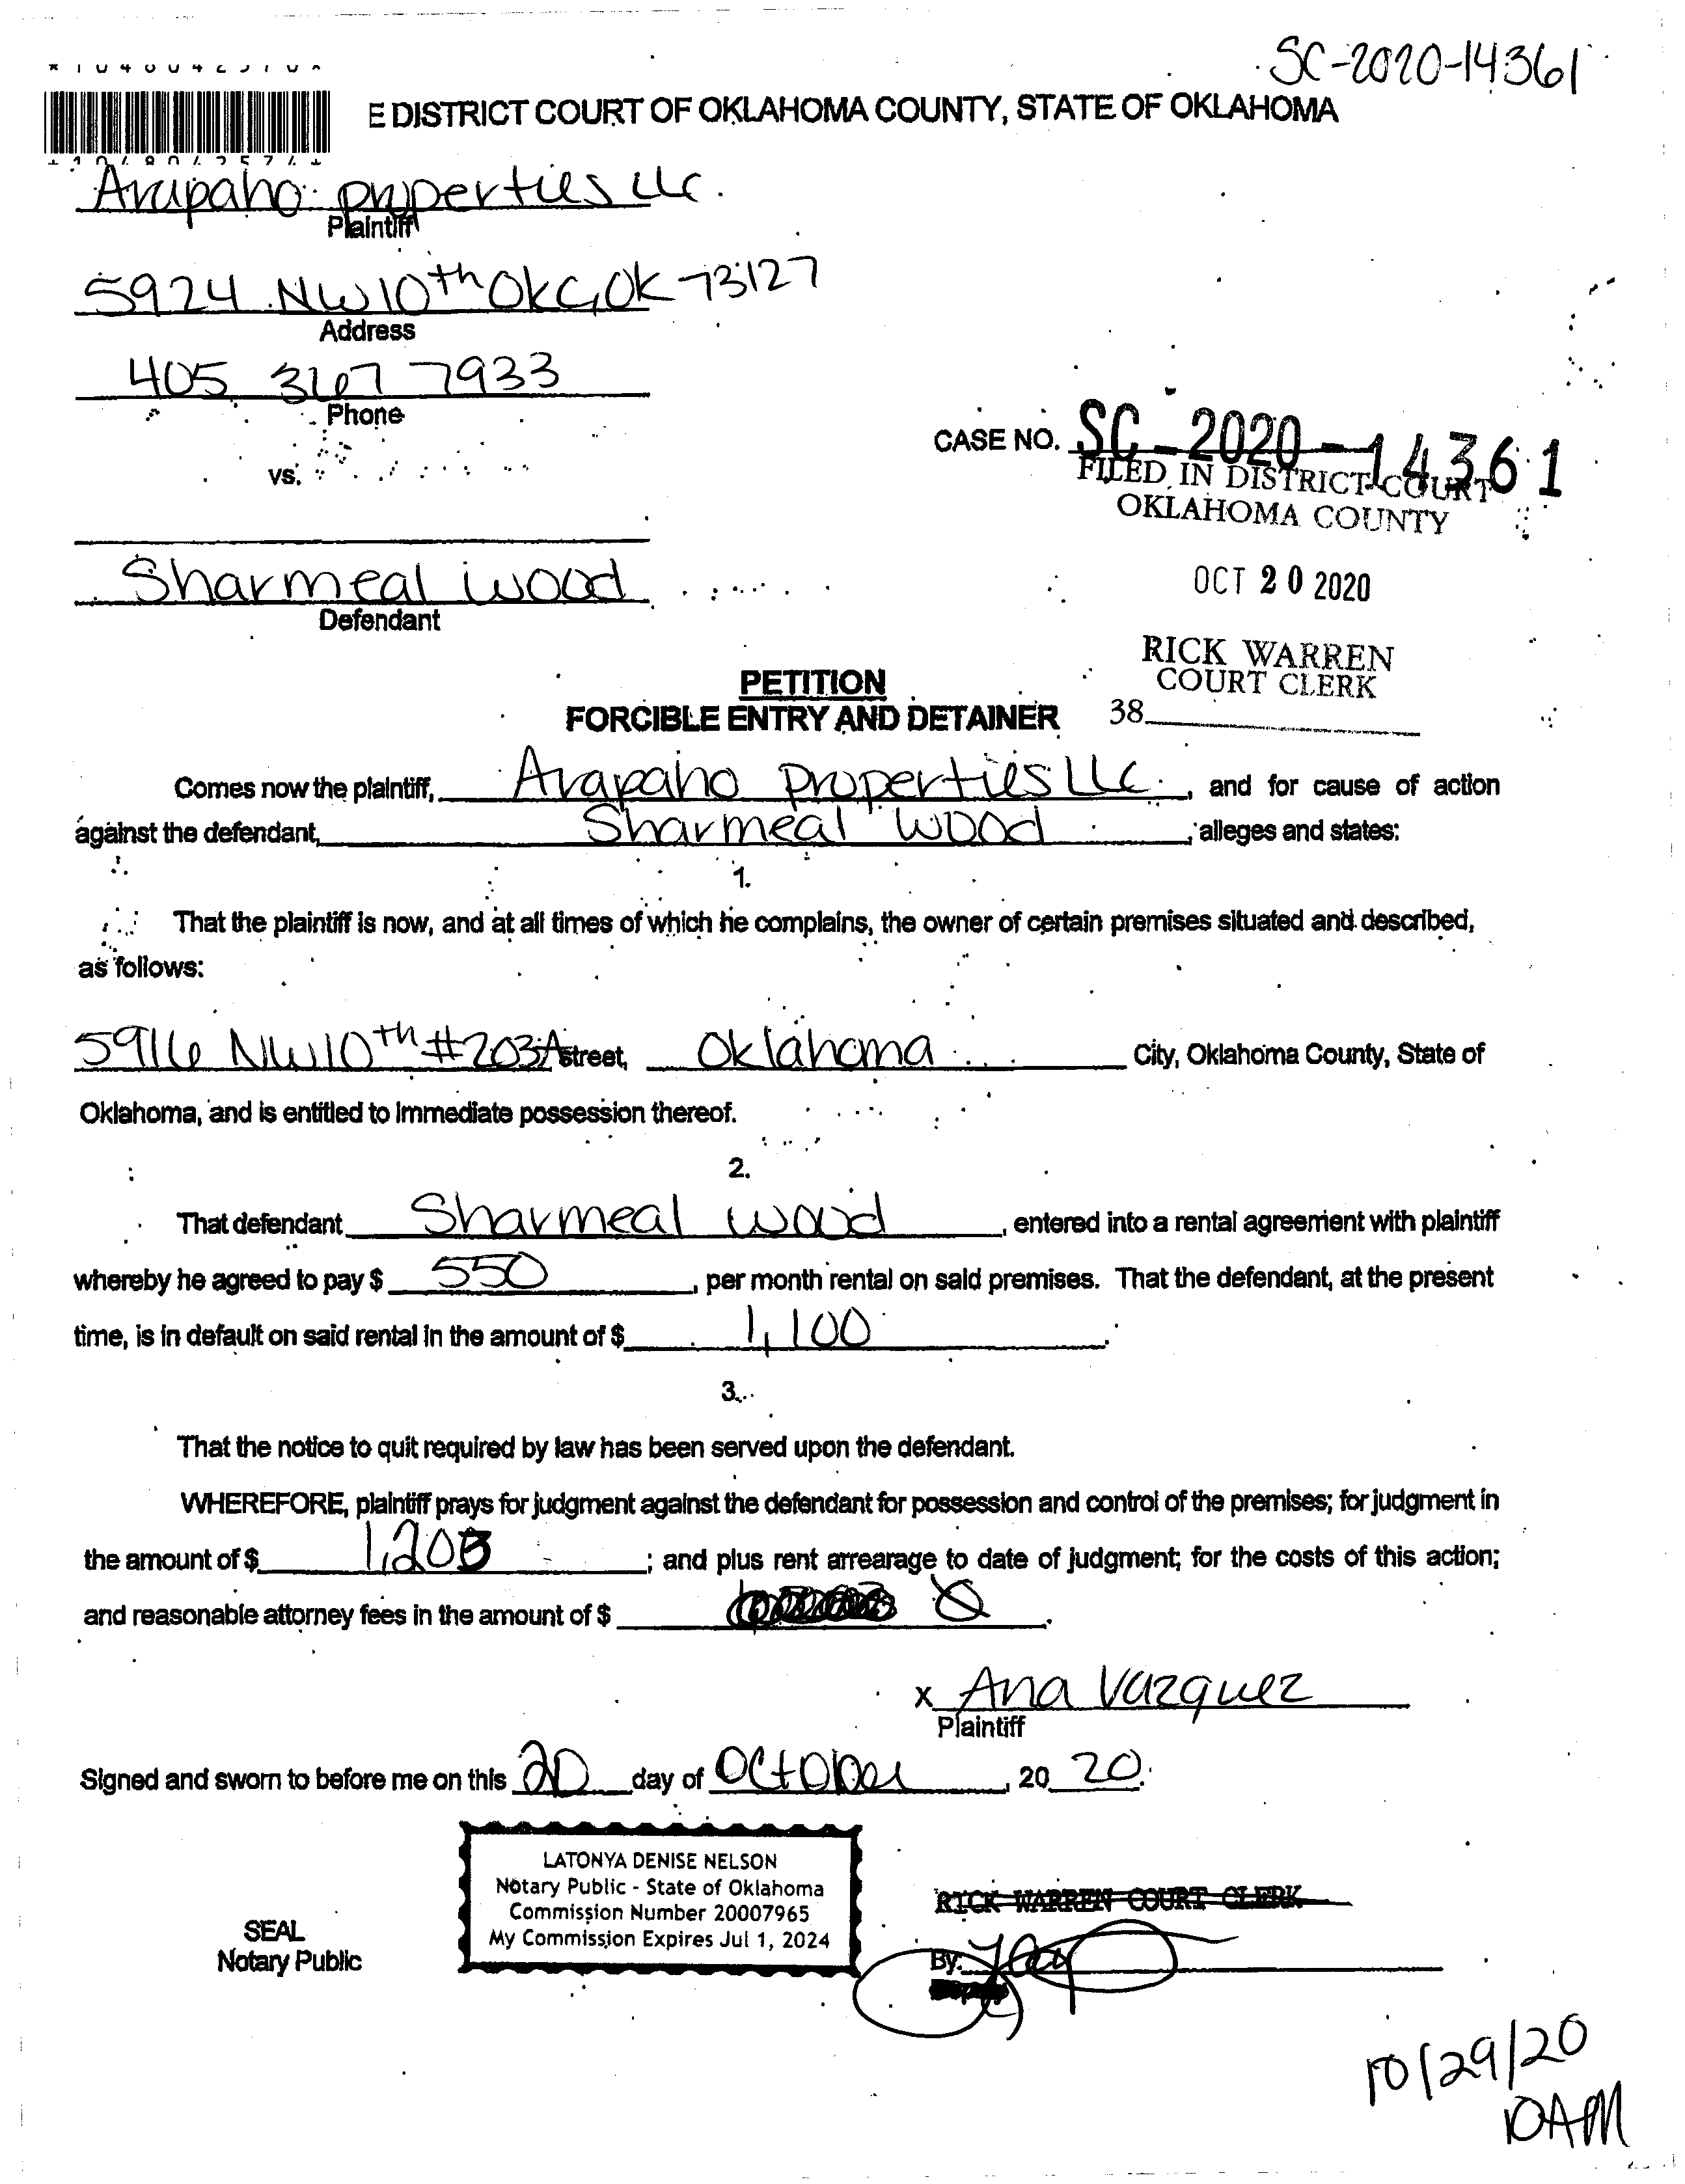 SC-2020-14361
E DISTRICT COURT OF OKLAHOMA COUNTY, STATE OF OKLAHOMA
Arapaho properties LLC.
Plaintiff
5924 NW 10th OKC, OK 73127
Address
405 367 7933
Phone
CASE NO. SC-2020-14361
FILED IN DISTRICT COURT
OKLAHOMA COUNTY
vs.
OCT 20 2020
Sharmeal Wood
Defendant
RICK WARREN
COURT CLERK
38
PETITION
FORCIBLE ENTRY AND DETAINER
Comes now the plaintiff, Arapaho properties LLC, and for cause of action
against the defendant, Sharmeal Wood, alleges and states:
1.
That the plaintiff is now, and at all times of which he complains, the owner of certain premises situated and described,
as follows:
5916 NW 10th #203A street, Oklahoma City, Oklahoma County, State of
Oklahoma, and is entitled to immediate possession thereof.
2.
That defendant Sharmeal Wood, entered into a rental agreement with plaintiff
whereby he agreed to pay $ 550, per month rental on said premises. That the defendant, at the present
time, is in default on said rental in the amount of $ 1,100.
3.
That the notice to quit required by law has been served upon the defendant.
WHEREFORE, plaintiff prays for judgment against the defendant for possession and control of the premises; for judgment in
the amount of $ ; and plus rent arrearage to date of judgment; for the costs of this action;
and reasonable attorney fees in the amount of $ .
x Ana Vazquez
Plaintiff
Signed and sworn to before me on this 20 day of October, 20 20.
LATONYA DENISE NELSON
Notary Public - State of Oklahoma
Commission Number 20007965
My Commission Expires Jul 1, 2024
SEAL
Notary Public
RICK WARREN COURT CLERK
By:
10/29/20
10AM